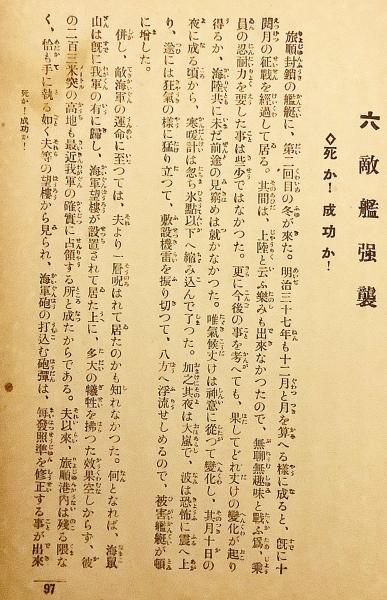 六　敵艦强襲
◇死か！成功か！
旅順封鎖の艦艇に、第二回目の冬が來た。明治三十七年も十二月と月を算へる樣に成ると、旣に十
閱月の征戰を經過して居る。其間は、上陸と云ふ樂みも出來なかつたので、無聊無趣味と戰ふ爲、乘
員の忍耐力を要した事は些少ではなかつた。更に今後の事を考へても、果してどれ丈けの變化が起り
得るか、海陸共に未だ前途の見窮めは就かなかつた。唯氣候丈けは神意に從つて變化し、其月十日の
夜に成る頃から、寒暖計は忽ち氷點以下へ縮み込んで了つた。加之其夜は大嵐で、波は恐怖に震へ上
り、遂には狂氣の樣に猛り立つて、敷設機雷を振り切つて、八方へ浮流せしめるので、被害艦艇が頓
に增した。
併し、敵海軍の運命に至つては、夫より一層呪はれて居たのかも知れなかつた。何となれば、海鼠
山は旣に我軍の有に歸し、海軍望樓が設置されて居た上に、多大の犧牲を拂つた效果空しからず、彼
の二百三米突の高地も最近我軍の確實に占領する所と成たからである。夫以來、旅順港內は殘る隈な
く、恰も手に執る如く夫等の望樓から見られ、海軍砲の打込む砲彈は、每發照準を修正する事が出來
死か！成功か！
97